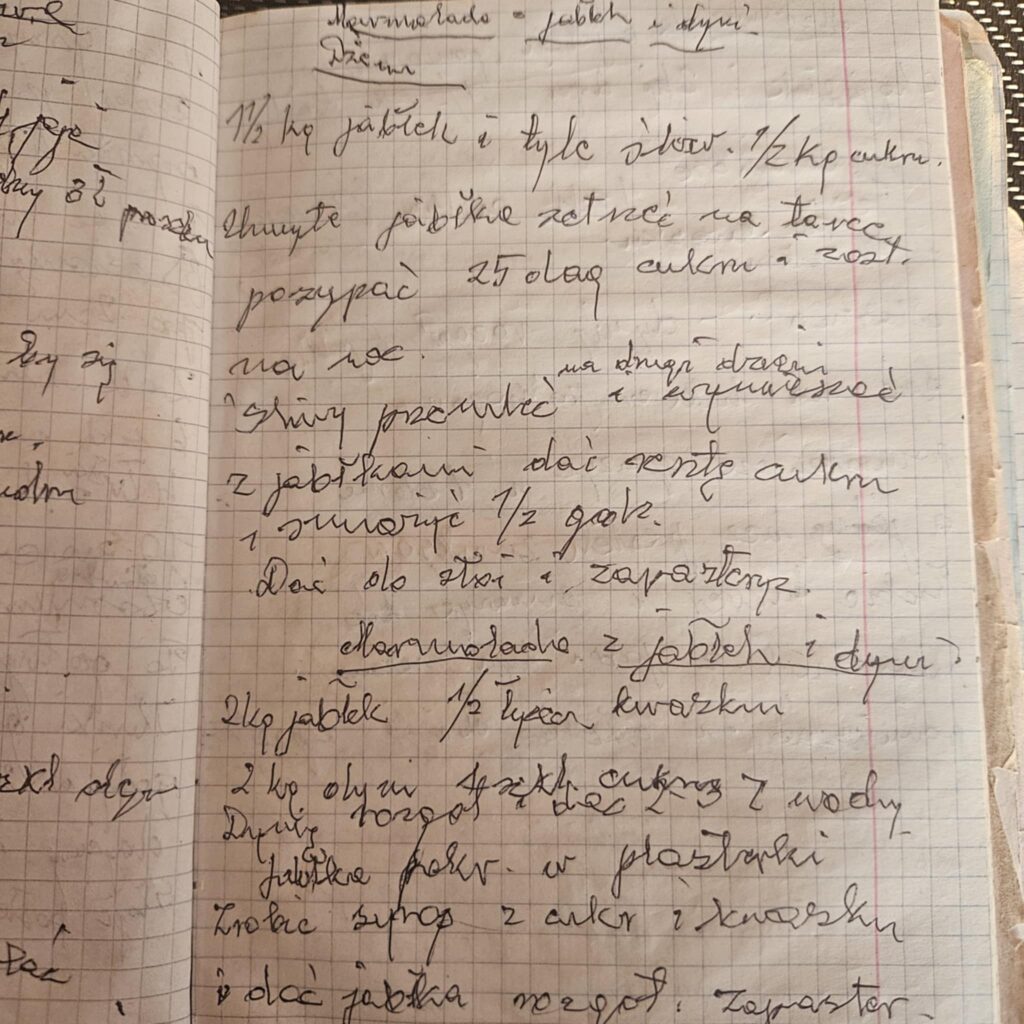 Marmolada z jabłek i dyni
Dżem
1 1/2 kg jabłek i tyle śliw. 1/2 kg cukru.
Umyte jabłka zetrzeć na tarce
posypać 25 dag cukru i zost.
na noc.
na drugi
Śliwy przemleć i wymieszać
z jabłkami dać resztę cukru
i smażyć 1/2 godz.
Dać do słoi i zapasteryz.
Marmolada z jabłek i dyni
2 kg jabłek 1/2 łyżecz kwasku
2 kg dyni cukru
Dynię rozgot i dać 2-3 wody
jabłka pokr. w plasterki
Zrobić syrop z cukr i kwasku
i dać jabłka rozgot. zapaster.
jeje
by się